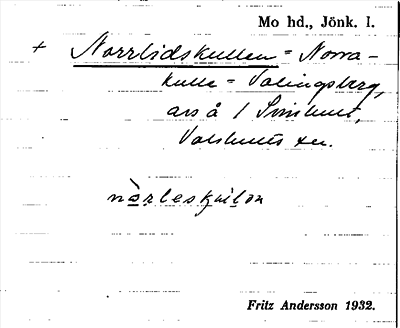 Mo hd., Jönk. l.
+ Norrlidskullen = Norra-
kulle = Valingsberg,
ås å / Svinhult,
Valshults
nòrleskulon
Fritz Andersson 1932.